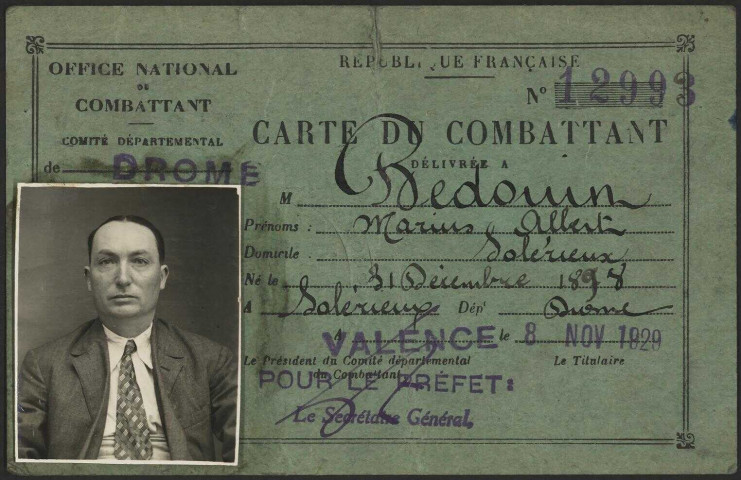 OFFICE NATIONAL
DU
COMBATTANT
COMITÉ DÉPARTEMENTAL
de DROME
RÉPUBLIQUE FRANÇAISE
N° 12993
CARTE DU COMBATTANT
DÉLIVRÉE A
M Bedouin
Prénoms : Marius, Albert
Domicile : Solérieux
Né le 31 Décembre 1898
A Solérieux Dépt Drôme
A VALENCE le 8 NOV 1929
Le Président du Comité départemental
du Combattant
Le Titulaire
POUR LE PRÉFET :
Le Secrétaire Général,